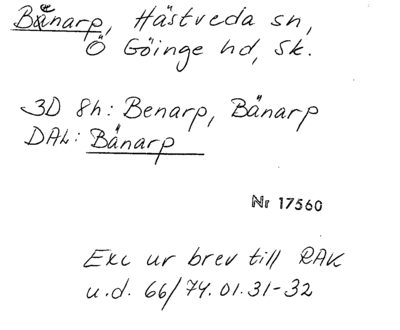 Benarp, Hästveda sn,
Ö Göinge hd, Sk.
3D 8h: Benarp, Bänarp
DAL: Bänarp
Nr 17560
Exc ur brev till RAK
u.d. 66/74.01.31-32